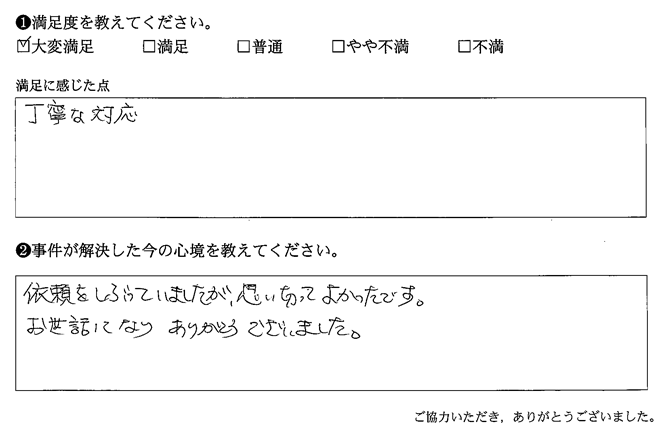 ❶満足度を教えてください。
☑大変満足 □満足 □普通 □やや不満 □不満
満足に感じた点
丁寧な対応
❷事件が解決した今の心境を教えてください。
依頼をしぶっていましたが、思い切ってよかったです。
お世話になり ありがとう ございました。
ご協力いただき，ありがとうございました。